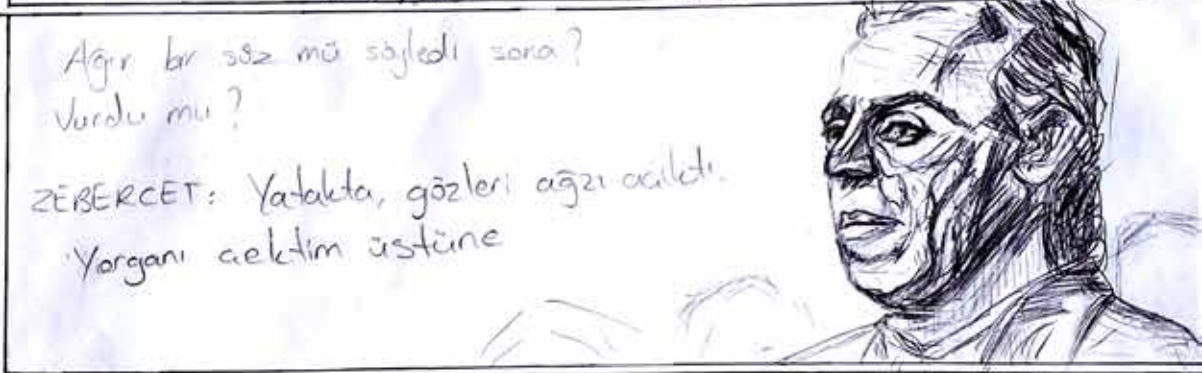 Ağır bir söz mü söyledi sana?
Vurdu mu?
ZEBERCET: Yatakta, gözleri ağzı açıktı.
Yorganı çektim üstüne